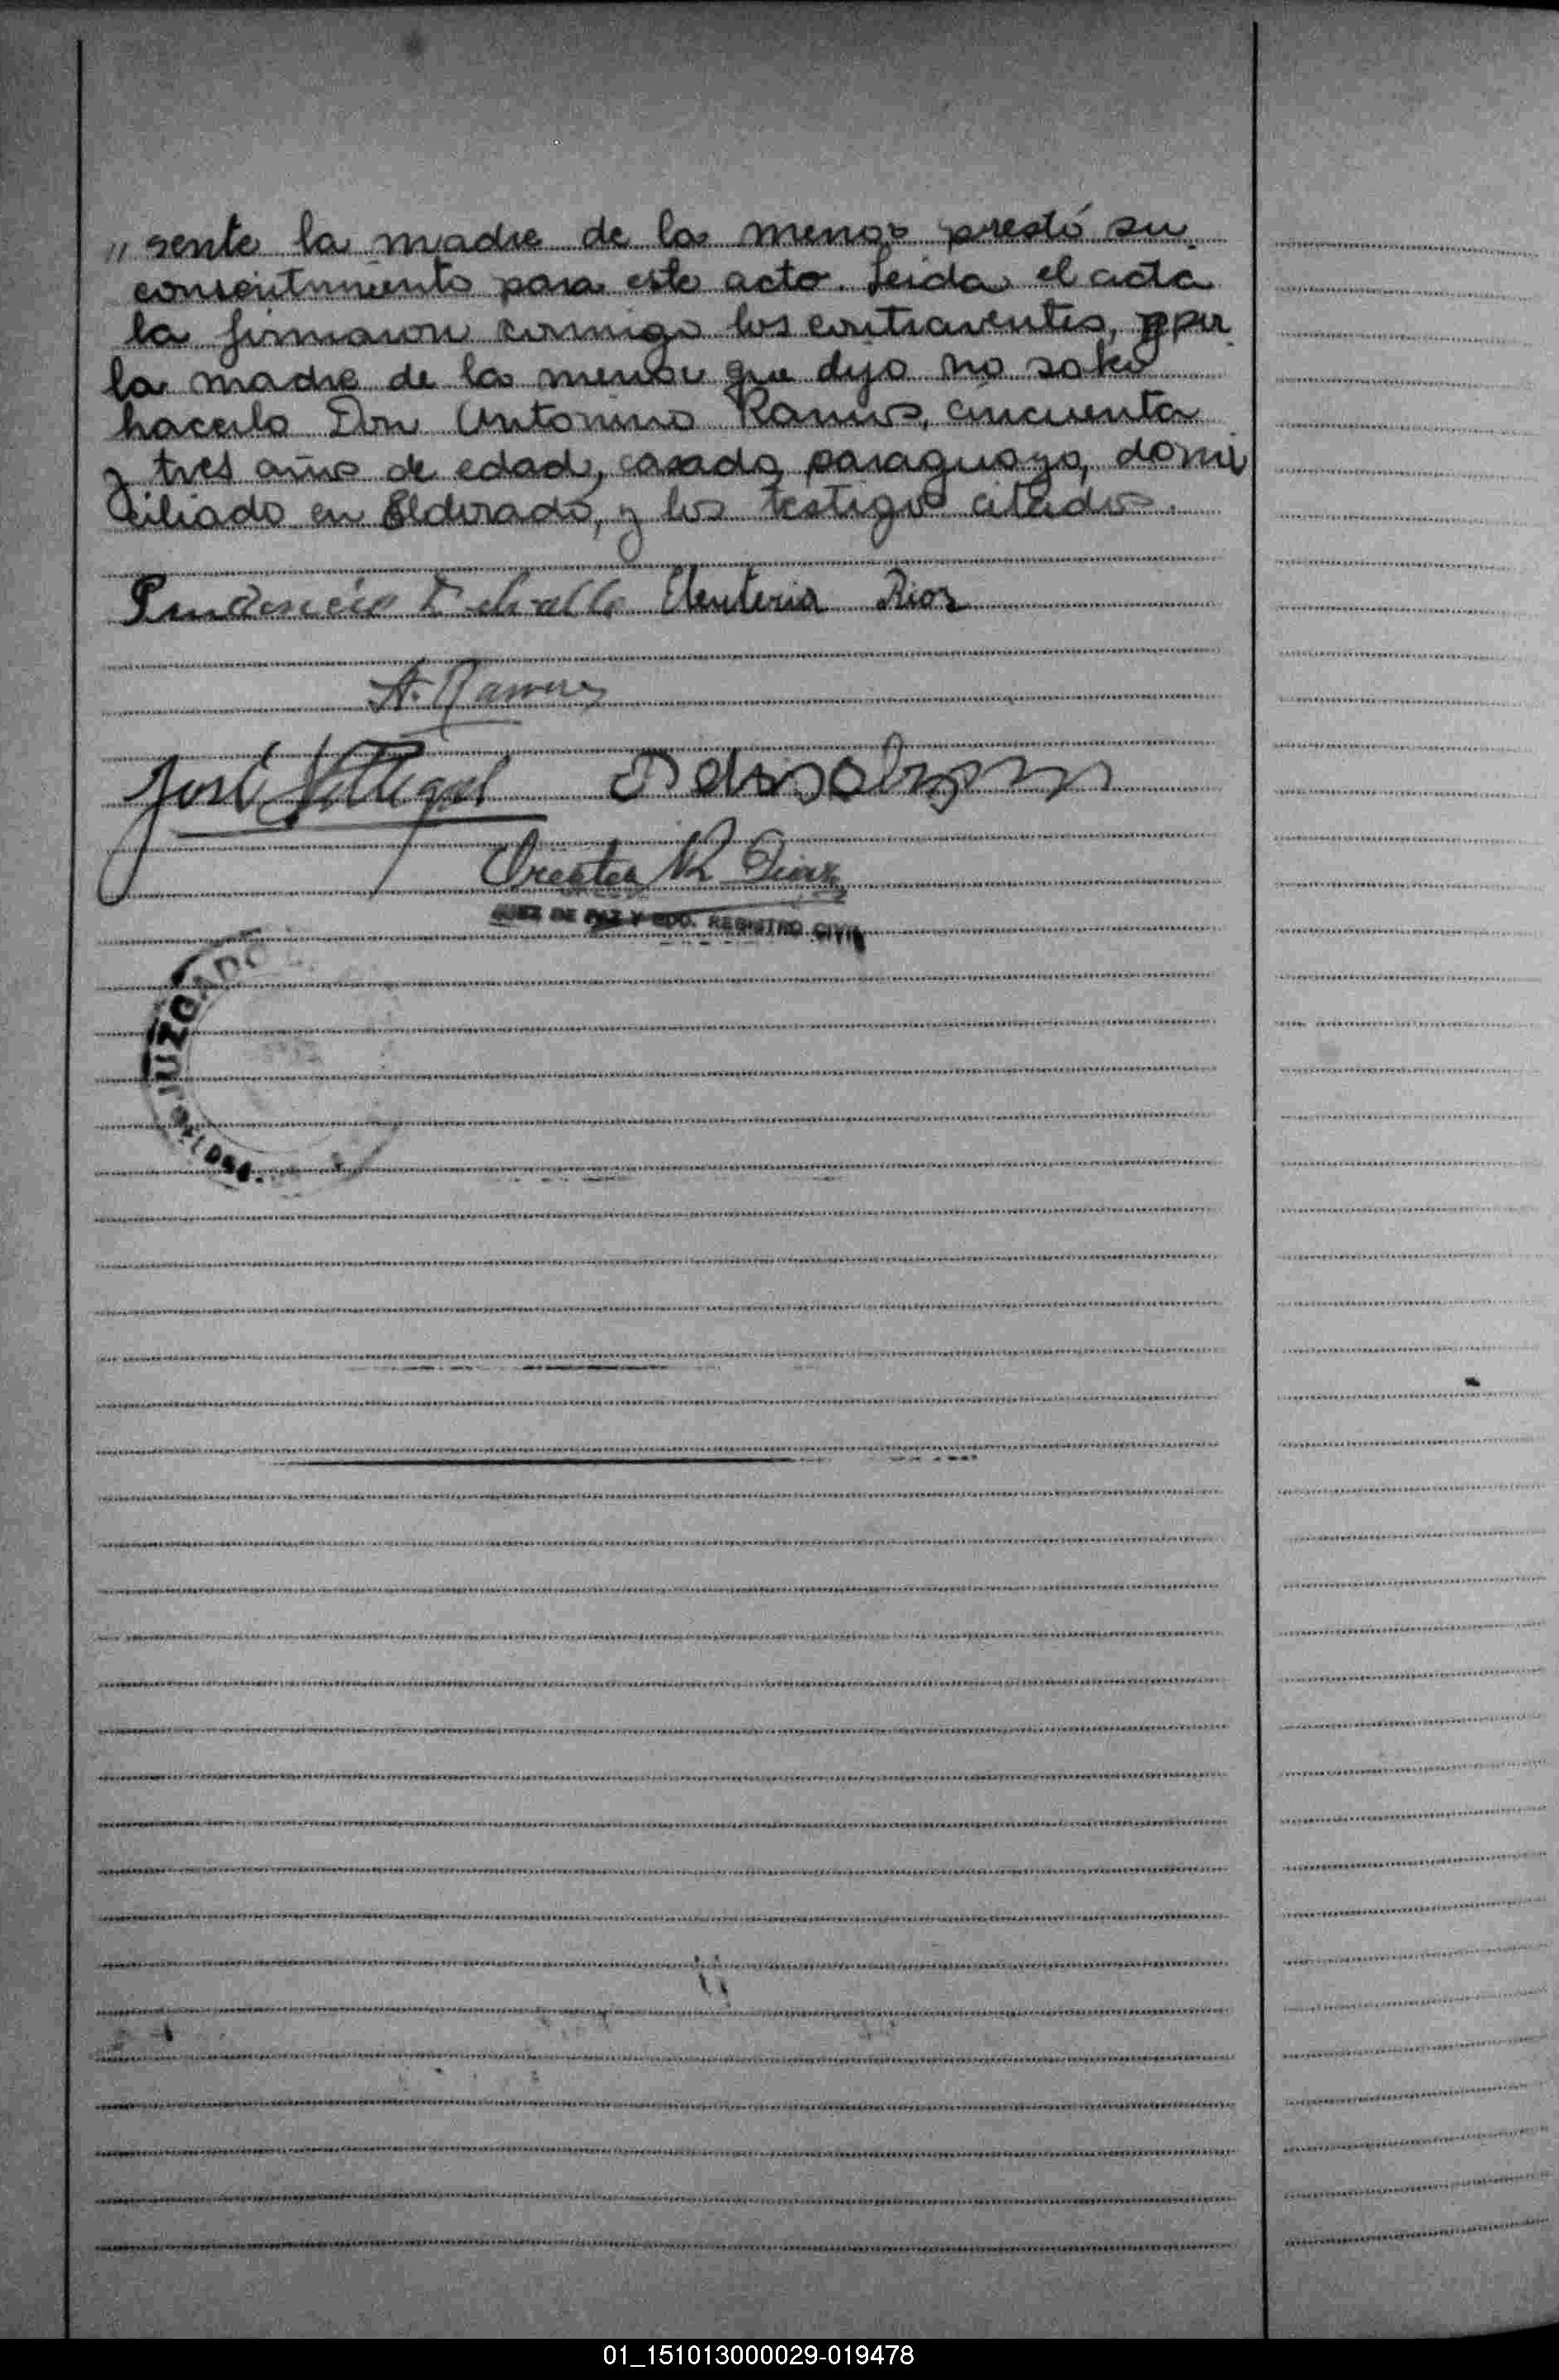 " sente la madre de la menor prestó su
consentimiento para este acto. Leida el acta
la firmaron conmigo los contrayentes, por
la madre de la menor que dijo no saber
hacerlo Don Antonino Ramos, cincuenta
y tres años de edad, casado, paraguayo, domi
ciliado en Eldorado, y los testigos citados.
Prudencio Eleuteria Rios
A.
José
Orestes R. Diaz
JUEZ DE PAZ Y EDO. REGISTRO CIVIL
JUZGADO
01_151013000029-019478